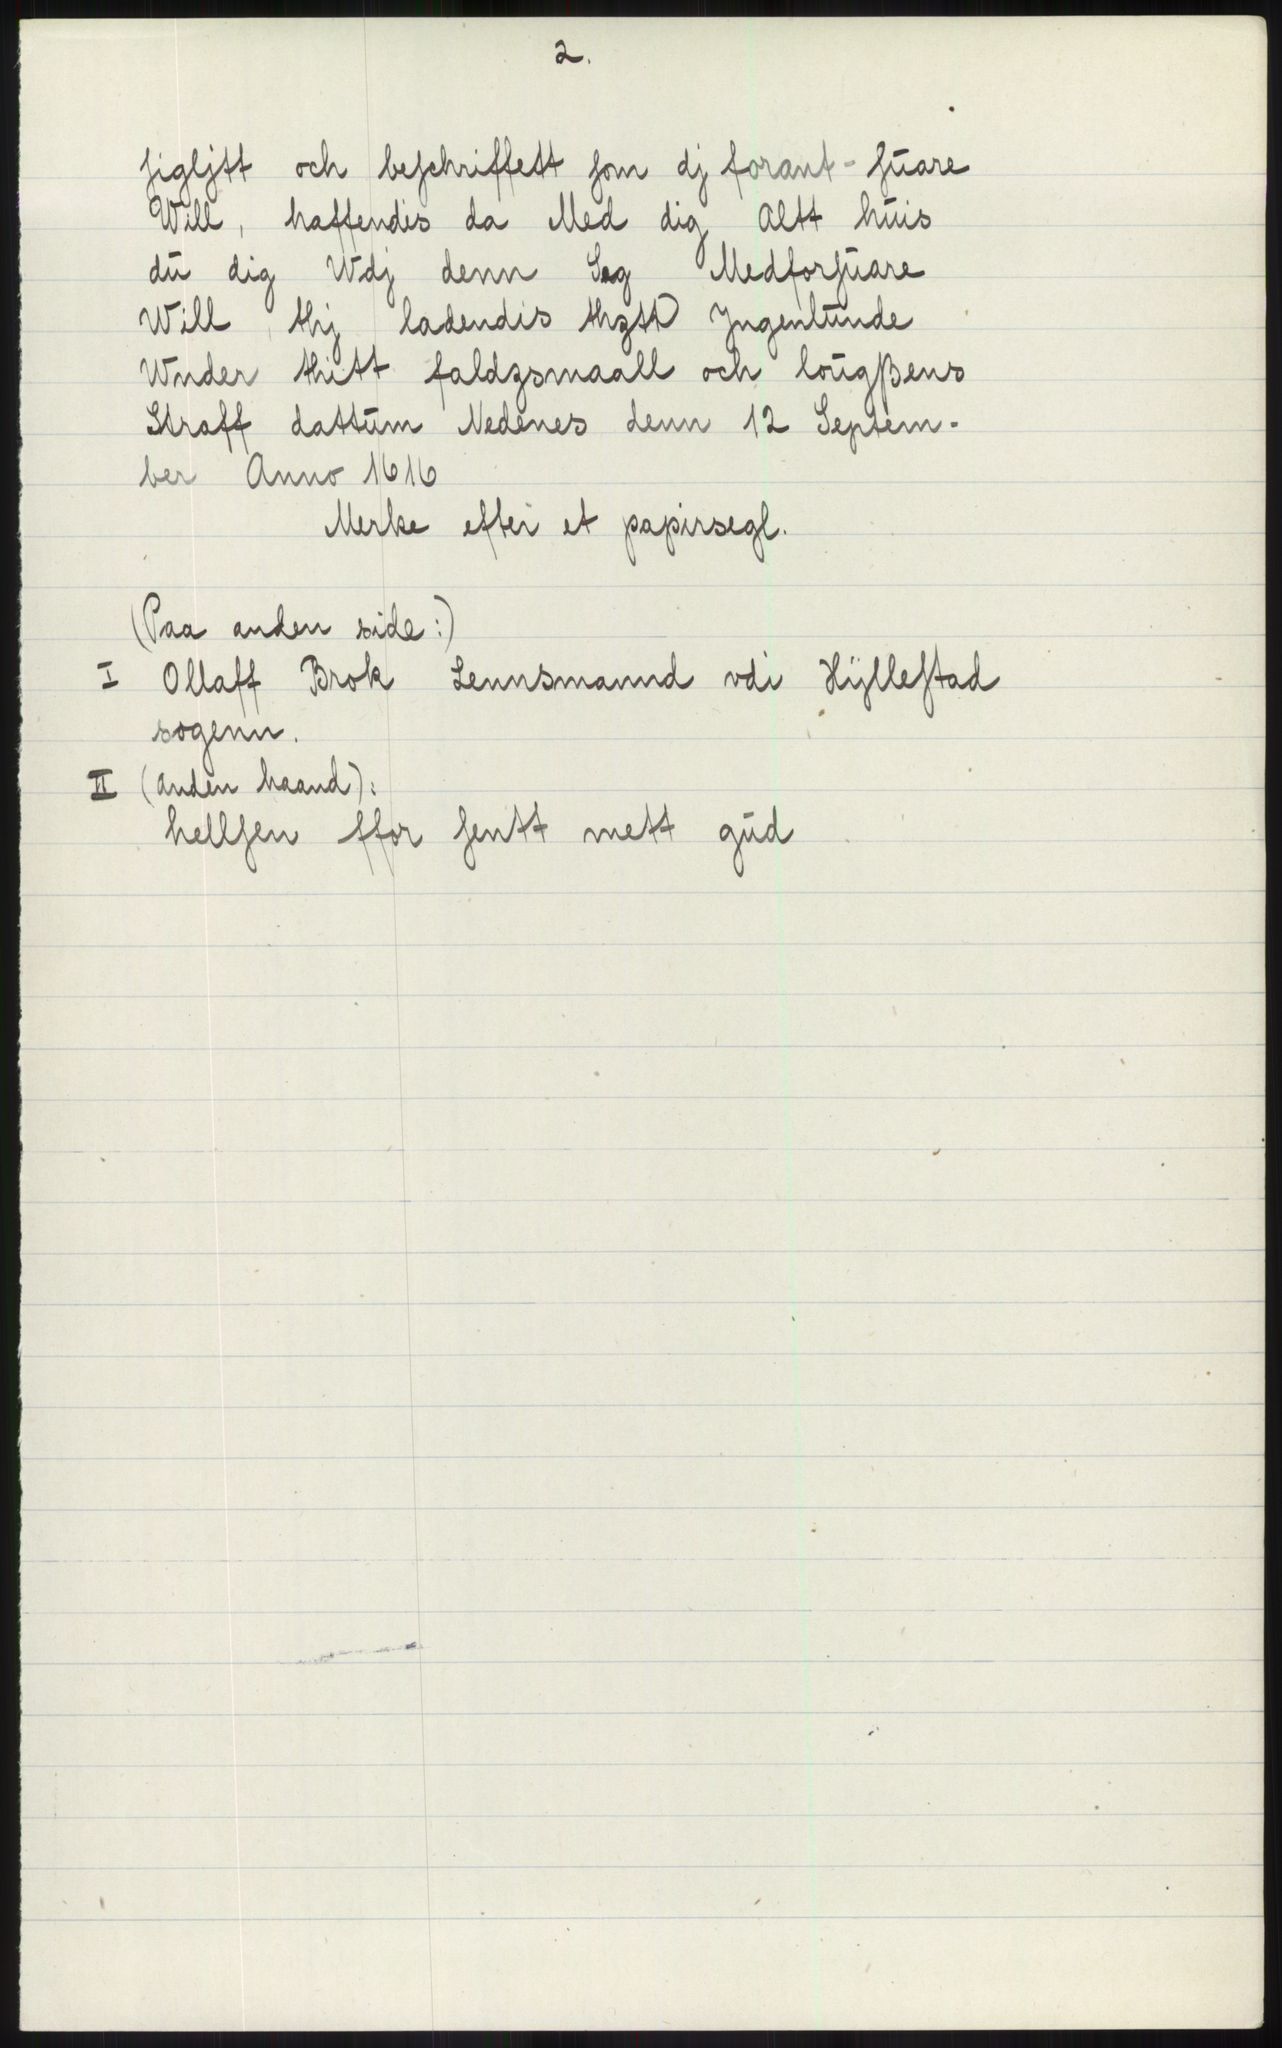 2.
ſigljtt och beſchriffett ſom dj forant-ſuare
Will, haffendis da Med dig Altt huis
du dig Wdj denn Sag Medforſuare
Will, thj ladendis thett Jngenlunde
Wnder thitt faldzsmaall och lougßens
Straff dattum Nedenes denn 12 Septem-
ber Anno 1616
Merke efter et papirsegl.
(Paa anden side:)
I Ollaff Brok Lennsmannd vdi Hÿlleſtad
sogenn.
II (anden haand):
hellſen ffor ſentt mett gud